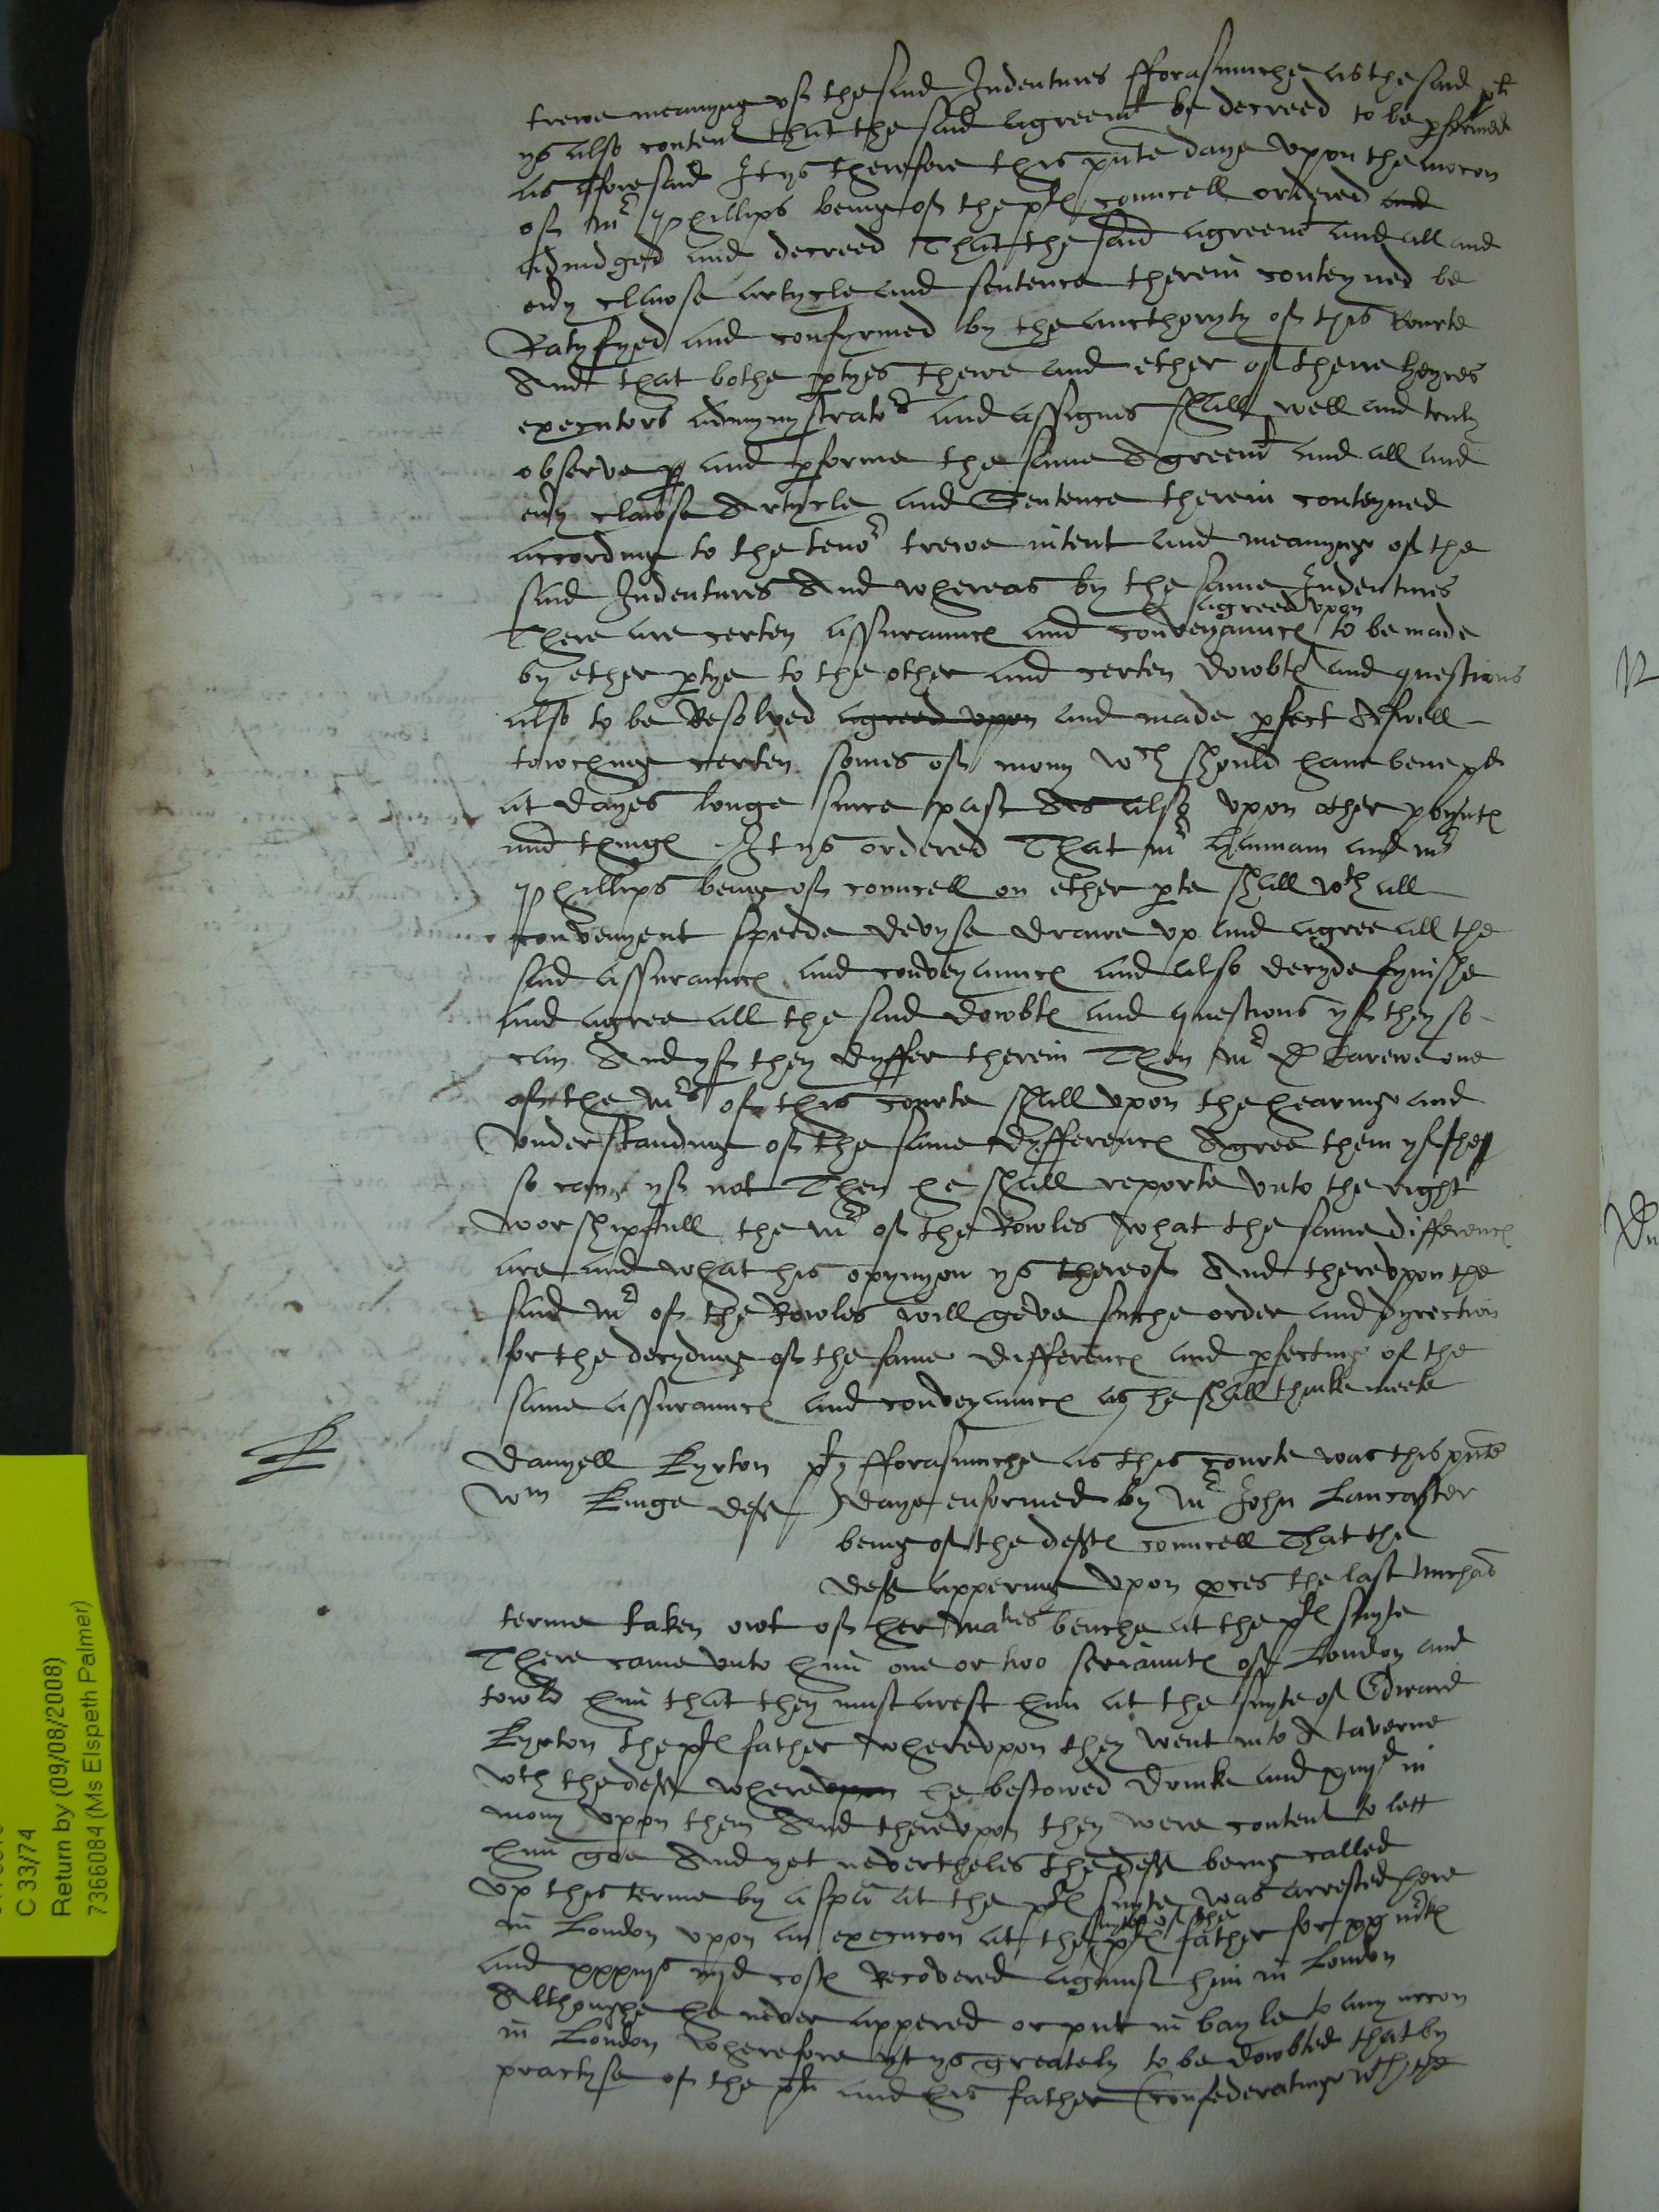 trewe meanyng of the said Indentures fforasmuche as the said plt
ys also content that the said agreemt be decreed to be pformed
as aforesaid It ys therefore this pnte daye vpon the mocon
of Mr Phillips being of the pltes councell ordered and
adiudged and decreed That the said agreemt and all and
evy clawse artycle and sentence therein conteyned be
Ratyfyed and confyrmed by the aucthoryty of this Courte
And that bothe ptyes theire and ether of theire heyres
executors admynystrators and assignes shall well and truly
observe and pforme the same Agreemt and all and
evy clawse Artycle and Sentence therein conteyned
according to the tenor trewe intent and meanynge of the
said Indentures And whereas by the same Indentures
agreed vpon
There are certen assuraunces and conveyaunces to be made
by ether ptye to the other and certen dowbtes and questions
also to be Resolved agreed vpon and made pfect Aswell
towching certen somes of mony wch should haue bene pd
at dayes longe since past As also vpon other poyntes
and thinges It ys ordered That Mr Hannam and Mr
Phillips being of councell on ether pte shall wth all
convenyent speede devyse drawe vp and agree all the
said assuraunces and conveyaunces and also decyde fynishe
and agree all the said dowbtes and questions yf they so
can And yf they dyffer therein Then Mr D Carewe one
of the Mrs of this courte shall vpon the hearinge and
vnderstanding of the same dyfferences Agree them yf they
so can yf not Then he shall reporte vnto the right
worshipfull the Mr of the Rowles what the same differences
are and what his opynyon ys thereof And therevpon the
said Mr of the Rowles will geve suche order and dyrection
for the decyding of the same differences and pfecting of the
same assuraunces and conveyaunces as he shall thinke meete
Danyell Kyrton plt fforasmuche as this courte was this pnte
Wm Kinge deft daye enformed by Mr John Lancaster
being of the deftes councell That the
deft appering vpon pces the last Michas
terme taken owt of her Maties benche at the pltes suyte
There came vnto him one or two seriauntes of London and
towld him that they must arest him at the suyte of Edward
Kyrton the pltes father wherevpon they went into A taverne
wth the deft wherevpon he bestowed drinke and xviijd in
mony vpon them And therevpon they were content to lett
him goe And yet nevertheles the deft being called
vp this terme by a spa at the pltes suyte was arrested here
suyte of the
in London vpon an execucon at the pltes father for xx mrkes
and xxxvijs iiijd costes Recovered against him in London
Althoughe he never appered or put in bayle to any accon
in London Wherefore yt ys greately to be dowbted that by
practyse of the plt and his father (confederatinge wth the
C 33/74
Return by (09/08/2008)
7366084 (Ms Elspeth Palmer)